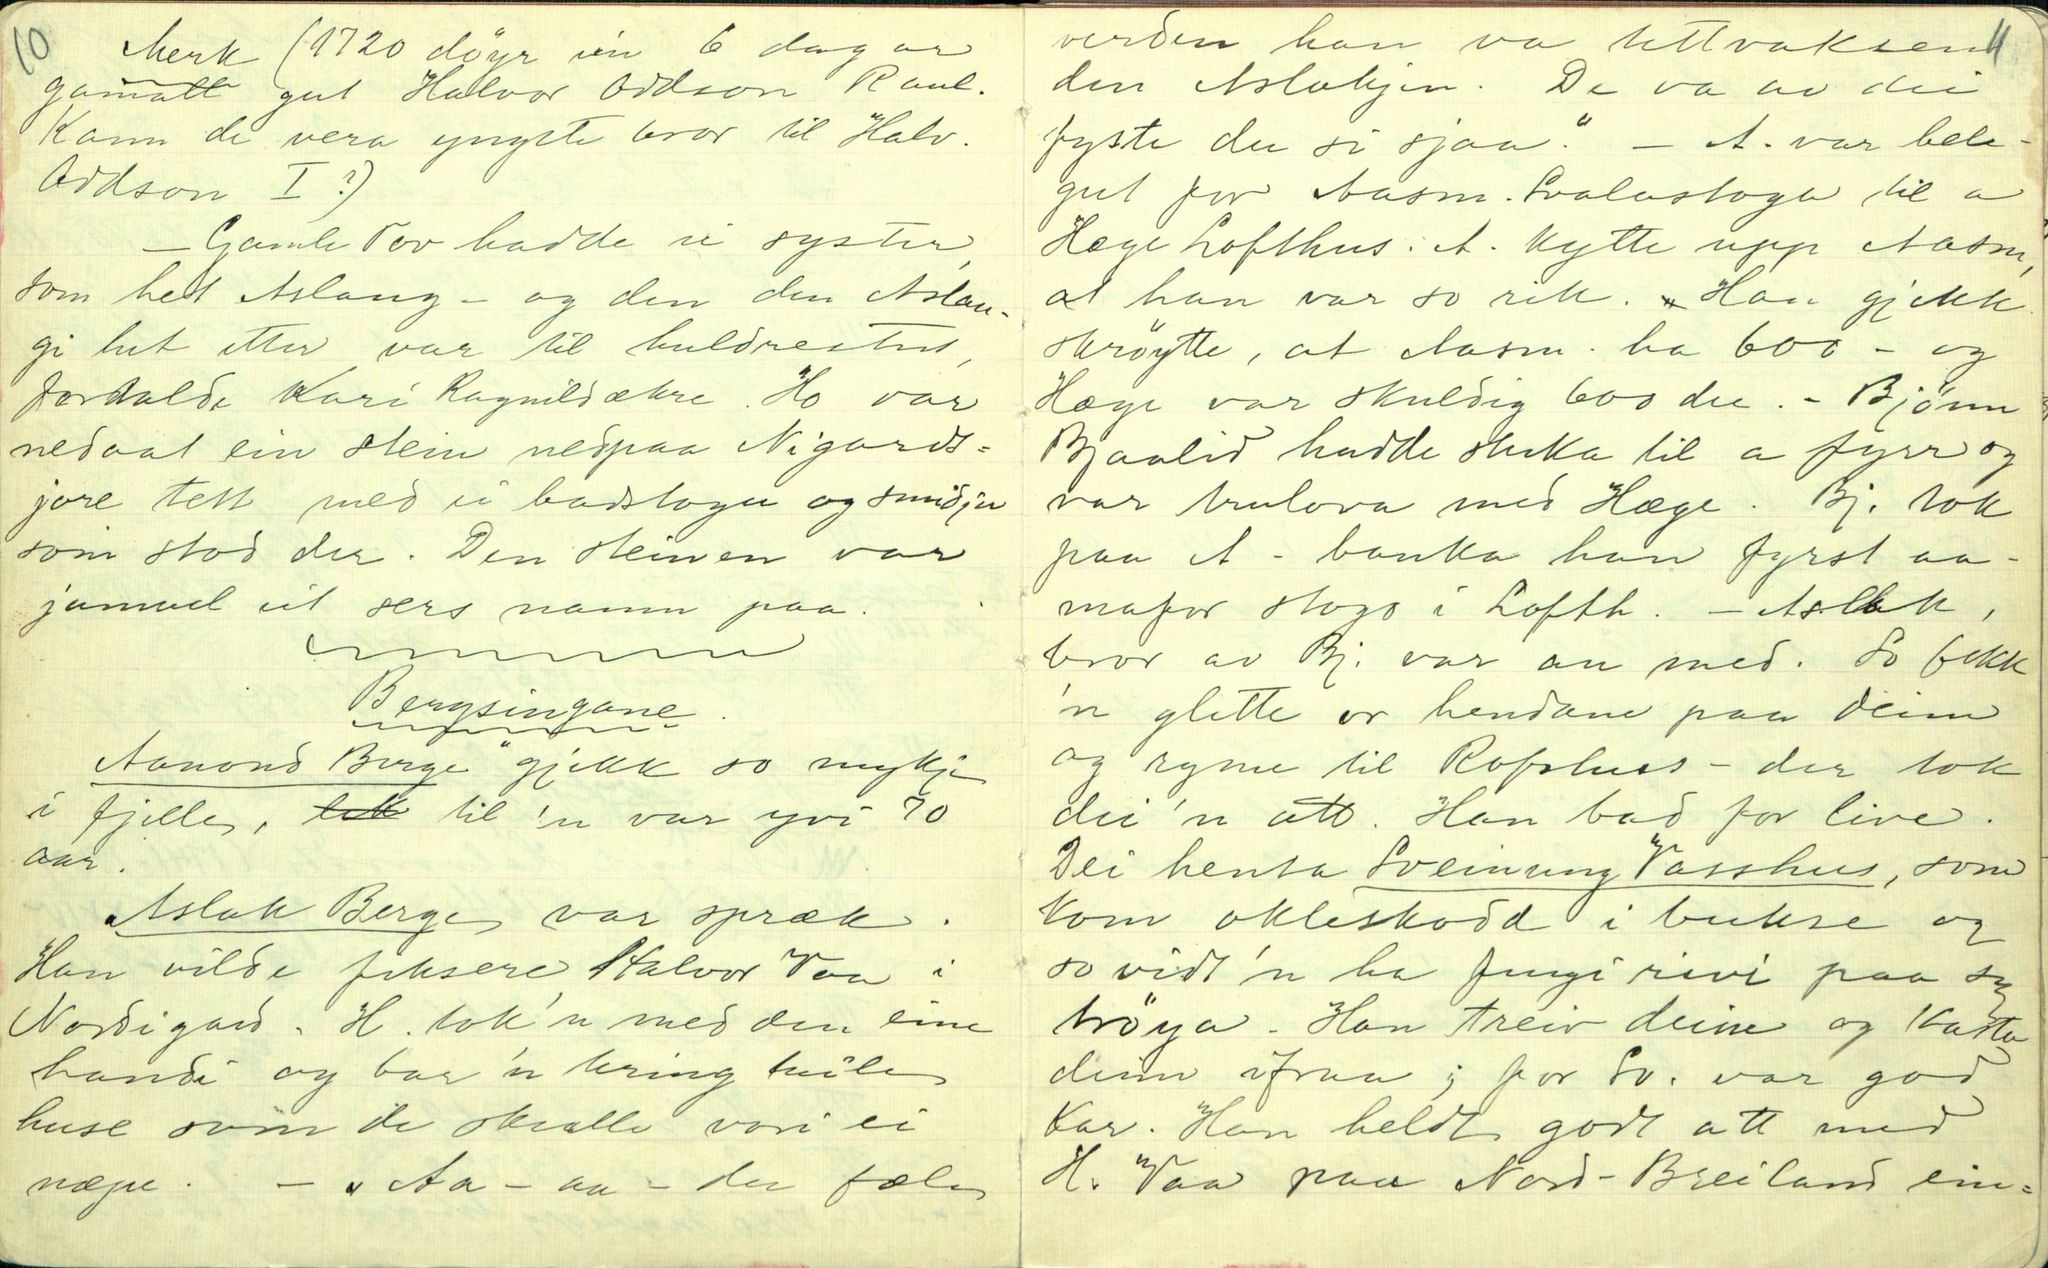 10
Merk (1720 döyr ein 6 dagar
gamall gut Halvor Oddson Raul.
Kann de vera yngste bror til Halv.
Oddson I?)
— Gamle Tov hadde ei syster,
som het Aslaug — og den den Aslau-
gi het etter var til huldrestet,
fortalde Kari Ragnildækre. Ho var
nedaat ein stein nedpaa Nigards-
jore tett med ei badstogu og smidju
som stod der. Den steinen var
jamnel eit sers namn paa.
Bergsingane.
Aanond Berge "gjekk so mykje
i fjelle, til 'n var yvi 70
aar.
Aslak Berge var spræk.
Han vilde fiksere Halvor Vaa i
Nordigard. H. tok 'n med den eine
handi og bar 'n kring heile
huse som de skulle vori ei
næpe. — „Aa — aa — den fæle
11
verden han va tettvaksen
den Aslakjen. De va av dei
fyste du si sjaa." — A. var bele-
gut for Aasm. Svalastoga til a
Hæge Lofthus. A. kytte upp Aasm,
at han var so rik. Han gjekk
skröytte, at Aasm. ha 600 — og
Hæge var skuldig 600 dlr. — Bjönn
Bjaalid hadde stuka til a fyrr og
var trulova med Hæge. Bj. tok
paa A — banka han fyrst aa-
mafor stogo i Lofth. — Aslak,
bror av Bj. var au med. So fekk
'n glette or hendane paa deim
og ryme til Rofshus — der tok
dei 'n att. Han bad for live.
Dei henta Sveinung Vasshus, som
kom okleskodd i bukse og
so vidt 'n ha fengi rivi paa seg
tröya. Han treiv deim og kasta
deim ifraa; for Sv. var god
kar. Han heldt godt att med
H. Vaa paa Nord-Breiland ein-